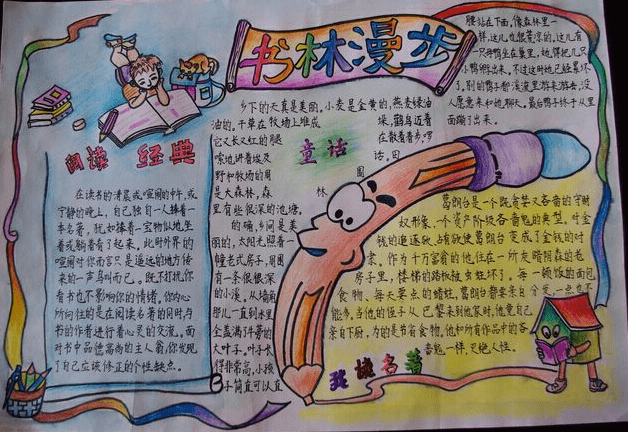 书林漫步
阅读 经典
在读书的清晨或喧闹的中午，或
宁静的晚上，自己独自一人捧着一
本名著，犹如捧着一宝物似地，坐
着或躺着看了起来，此时外界的
喧闹对你而言只是遥远的地方传
来的一声鸟叫而已。既不打扰你
看书也不影响你的情绪，你内心
所向往的是在阅读名著的同时与
书的作者进行着心灵的交流。面
对书中品德高尚的主人翁，你发现
了自己应该修正的个性缺点。
童话
乡下的天真是美丽。小麦是金黄的，燕麦绿油
油的。干草在牧场上堆成垛，鹳鸟迈着
它又长又红的腿在散着步，啰
嗦地讲着埃及话。田
野和牧场的周围
是大森林，森林
里有些很深的池塘。
的确，乡间是美
丽的，太阳光照着一
幢老式房子，周围
有一条很深
的小溪。从墙角
那儿一直到水里
全盖满了牛蒡的
大叶子。叶子长
得非常高，小孩
子简直可以直
腰站在下面，像森林里一
样，这儿也很荒凉的。这儿有
一只母鸭坐在巢里，她得把几只
小鸭孵出来。不过这时她已经累坏
了。别的鸭子都溪流里游来游去，没
人愿意来和她聊天。最后鸭子终于从里
面蹦了出来。
我读名著
葛朗台是一个既贪婪又吝啬的守财
奴形象，一个资产阶级吝啬鬼的典型。对金
钱的追逐欲、占有欲使葛朗台变成了金钱的对
家，作为千万富翁的他，住在一所灰暗阴森的老
房子里，楼梯的踏板被虫蛀坏了。每一顿饭的面包、
食物、每天要点的蜡烛，葛朗台都要亲自分发一点也不
能多，当他的侄子从巴黎来到他家时，他竟自己
亲自下厨，为的是节省食物，他和所有作品中的吝
啬鬼一样，灭绝人性。